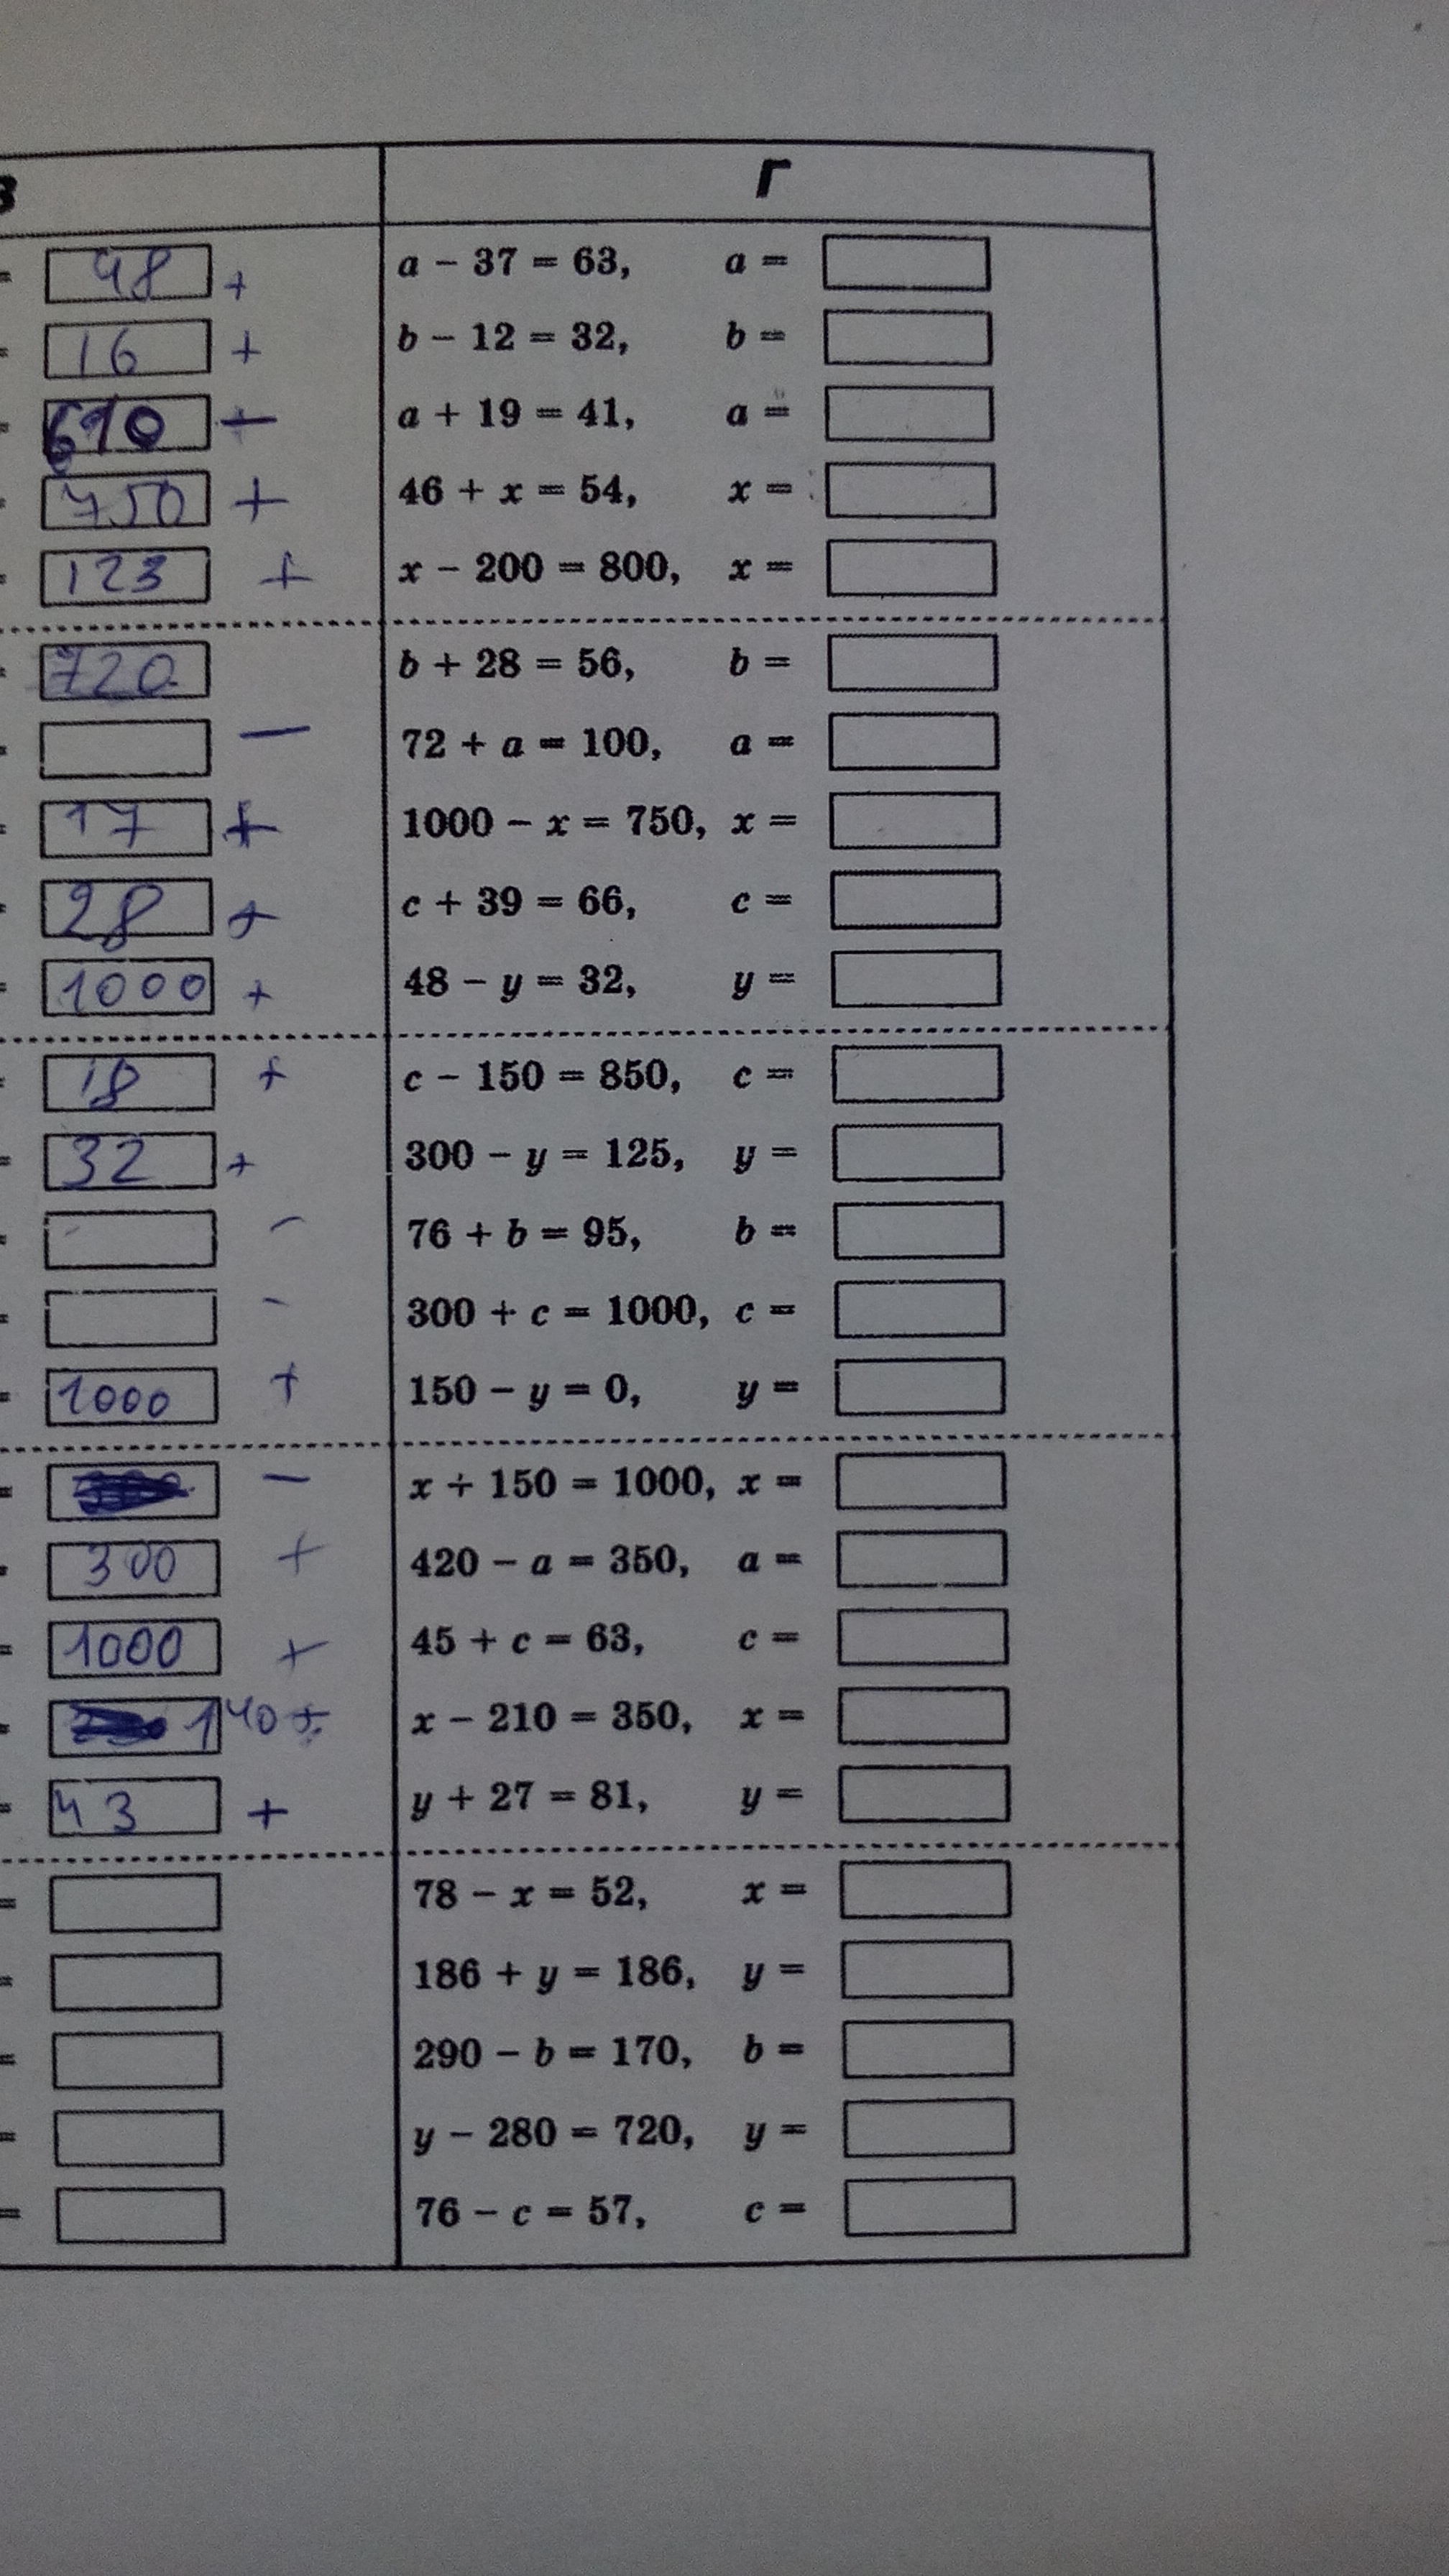 в Г
= 48 + a – 37 = 63, a =
= 16 + b – 12 = 32, b =
= 610 – a + 19 = 41, a =
= 750 + 46 + x = 54, x =
= 123 + x – 200 = 800, x =
= 720 b + 28 = 56, b =
= – 72 + a = 100, a =
= 17 + 1000 – x = 750, x =
= 28 + c + 39 = 66, c =
= 1000 + 48 – y = 32, y =
= 18 + c – 150 = 850, c =
= 32 + 300 – y = 125, y =
= – 76 + b = 95, b =
= – 300 + c = 1000, c =
= 1000 + 150 – y = 0, y =
= – x + 150 = 1000, x =
= 300 + 420 – a = 350, a =
= 1000 + 45 + c = 63, c =
= 140 + x – 210 = 350, x =
= 43 + y + 27 = 81, y =
= 78 – x = 52, x =
= 186 + y = 186, y =
= 290 – b = 170, b =
= y – 280 = 720, y =
= 76 – c = 57, c =